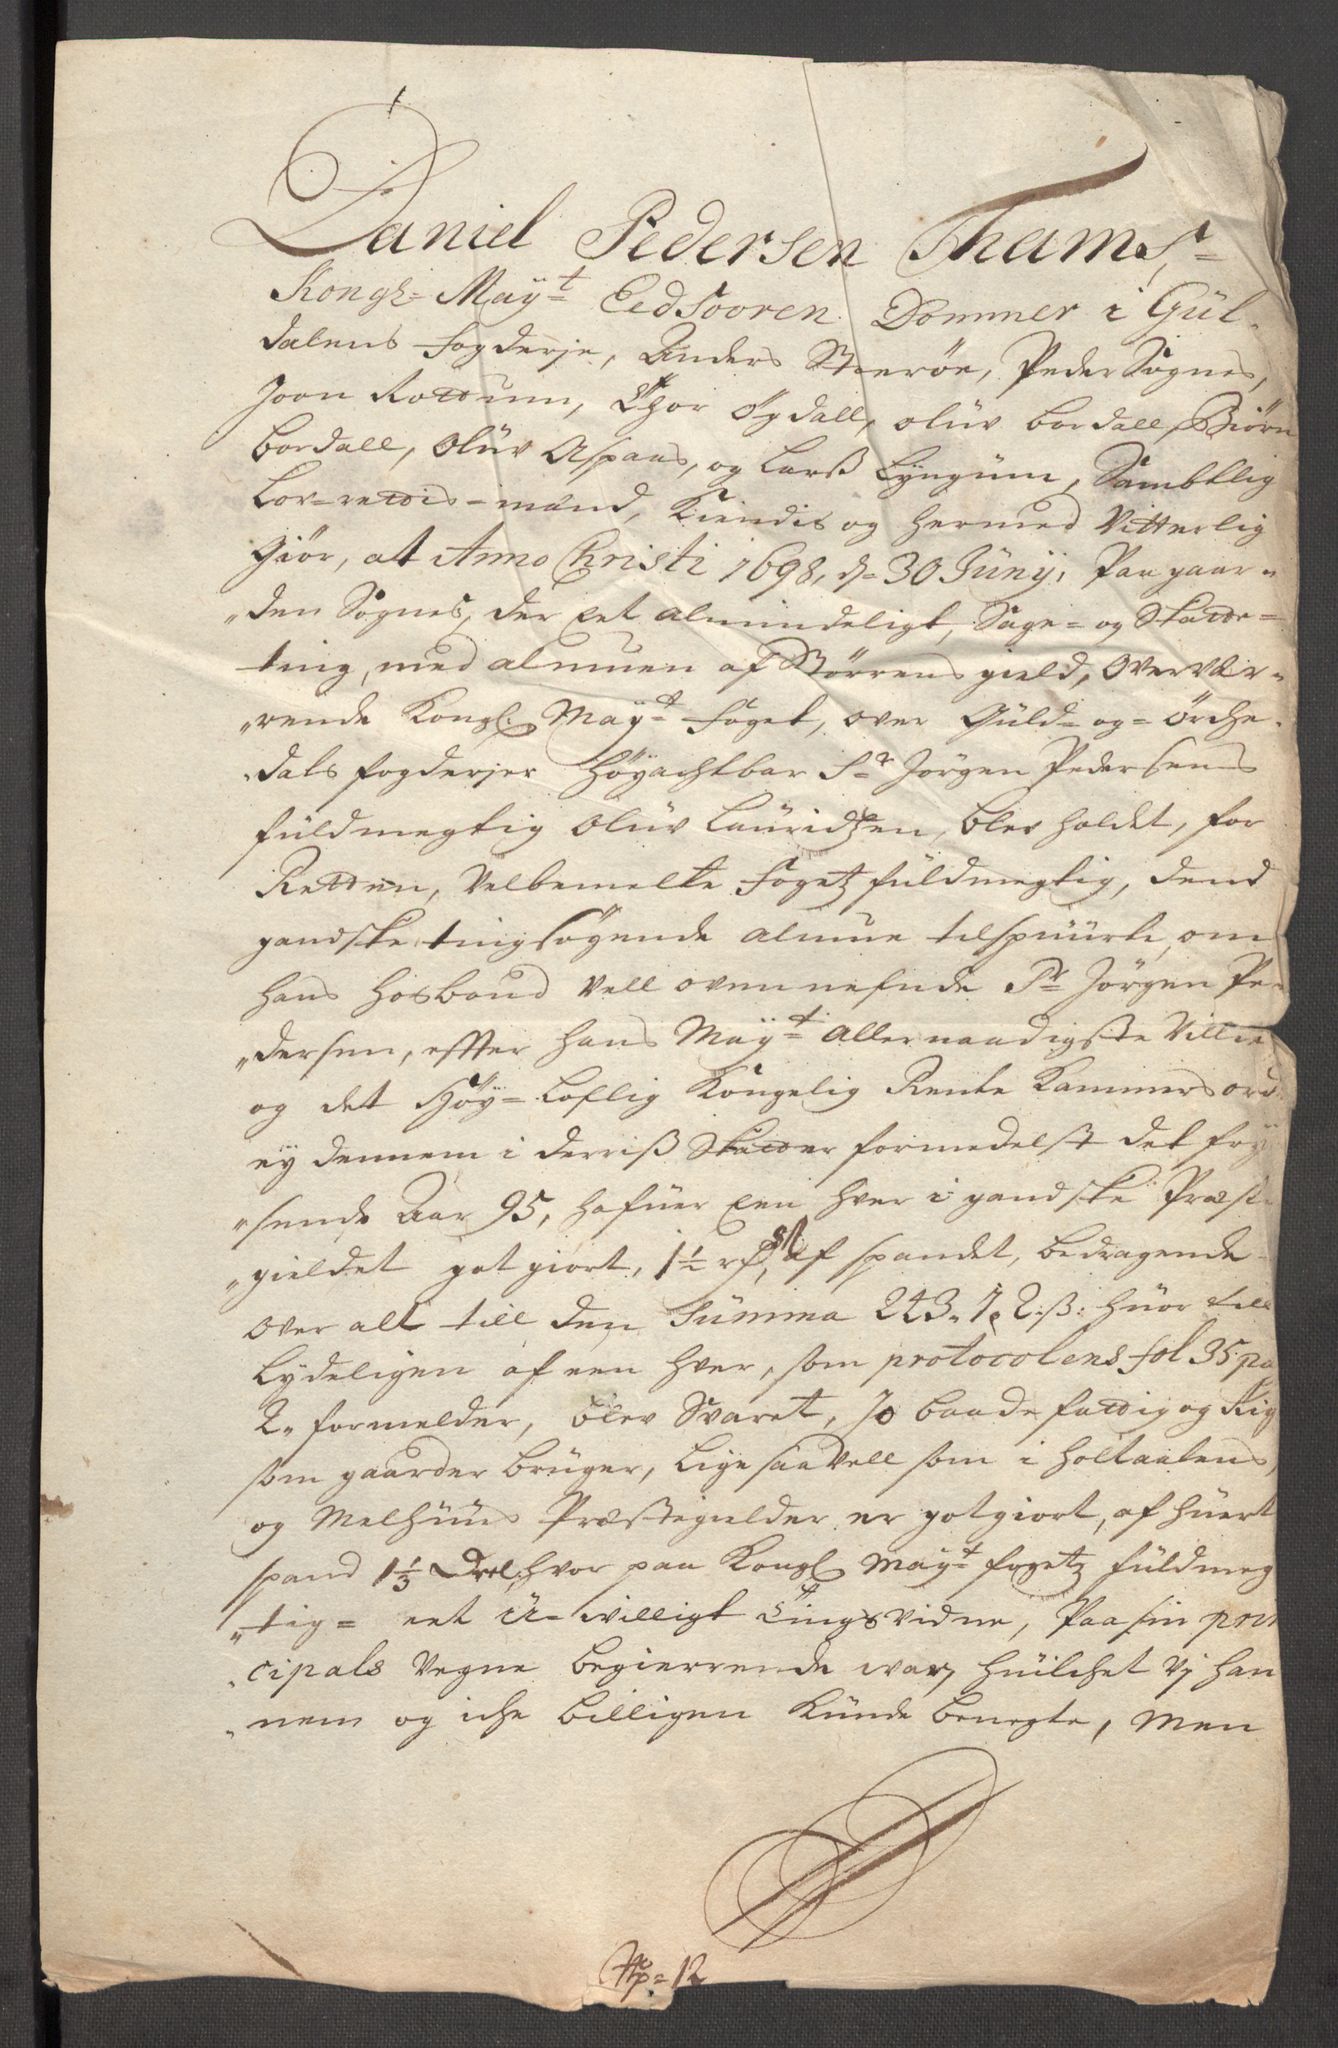 Daniel Pedersen Thams,
Kongl= May:t Eedsooren Dommer i Gül-
dalens fogderje, Anders Steröe, Peder Sognes,
Joon Rottum, Thor Øgdall, olüv bordall, Biörn
bordall, olüv Aspaas, og Larß Lÿngüm, Sambtlig
Lov=rettis=mænd, Kiendis og hermed Vitterlig
Giör, at Anno Christi 1698, d= 30 Jünÿ, Paa gaar=
„den Sognes, der Eet almindeligt, Sage= og Skatte=
ting, med almuen af Störrens gield, overvær=
„rende Kongl: May:t foget, over Güld= og= örche=
„dals fogderjer Höyachtbar Sr Jörgen Pedersens
füldmegtig olüv Lauridtzen, blev holdet, for
Retten, Velbemelte fogetz füldmegtig, dend
gandske tingsögende almue tilspuurte, om
hans Hosbond Vell ovennefnde Sr Jörgen Pe=
„dersen, effter hans Maÿ:t allernaadigste Villie
og det Höy=Loflig Kongelig Rente Kammers ord
eÿ dennem i derriß Skatter formedelst det frÿ
„sende Aar 95, hafuer Een hver i gandske Præste
„gieldet gotgiort, 1½ rf, af spandet, bedragende
over alt till den Summa 243. 1. 2:ß: huor till
Lydeligen af een hver, som protocolens fol 35 pa
2„ formelder, blev Svaret, Jo baade fattig og Rig
som gaarder brüger, Lige saavell som i Holtaalens,
og Melhüüs Præstegielder er gotgiort, af huert
spand 1⅓ Drl. hvor paa Kongl May:t fogetz füldmeg
„tig= eet U=willigt Tingsvidne, Paa sin prin
„cipals Vegne begierrende war, huilchet Vj han
„nem og iche billigen Kunde benegte, Men
12